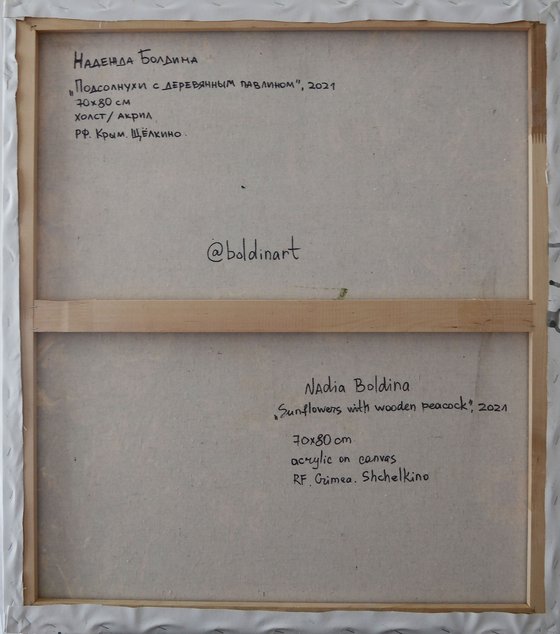 Надежда Болдина
„Подсолнухи с деревянным павлином", 2021
70x80 см
холст/акрил
РФ. Крым. Щёлкино
@boldinart
NAdia Boldina
„Sunflowers with wooden peacock", 2021
70x80 cm
acrylic on canvas
RF. Crimea. Shchelkino